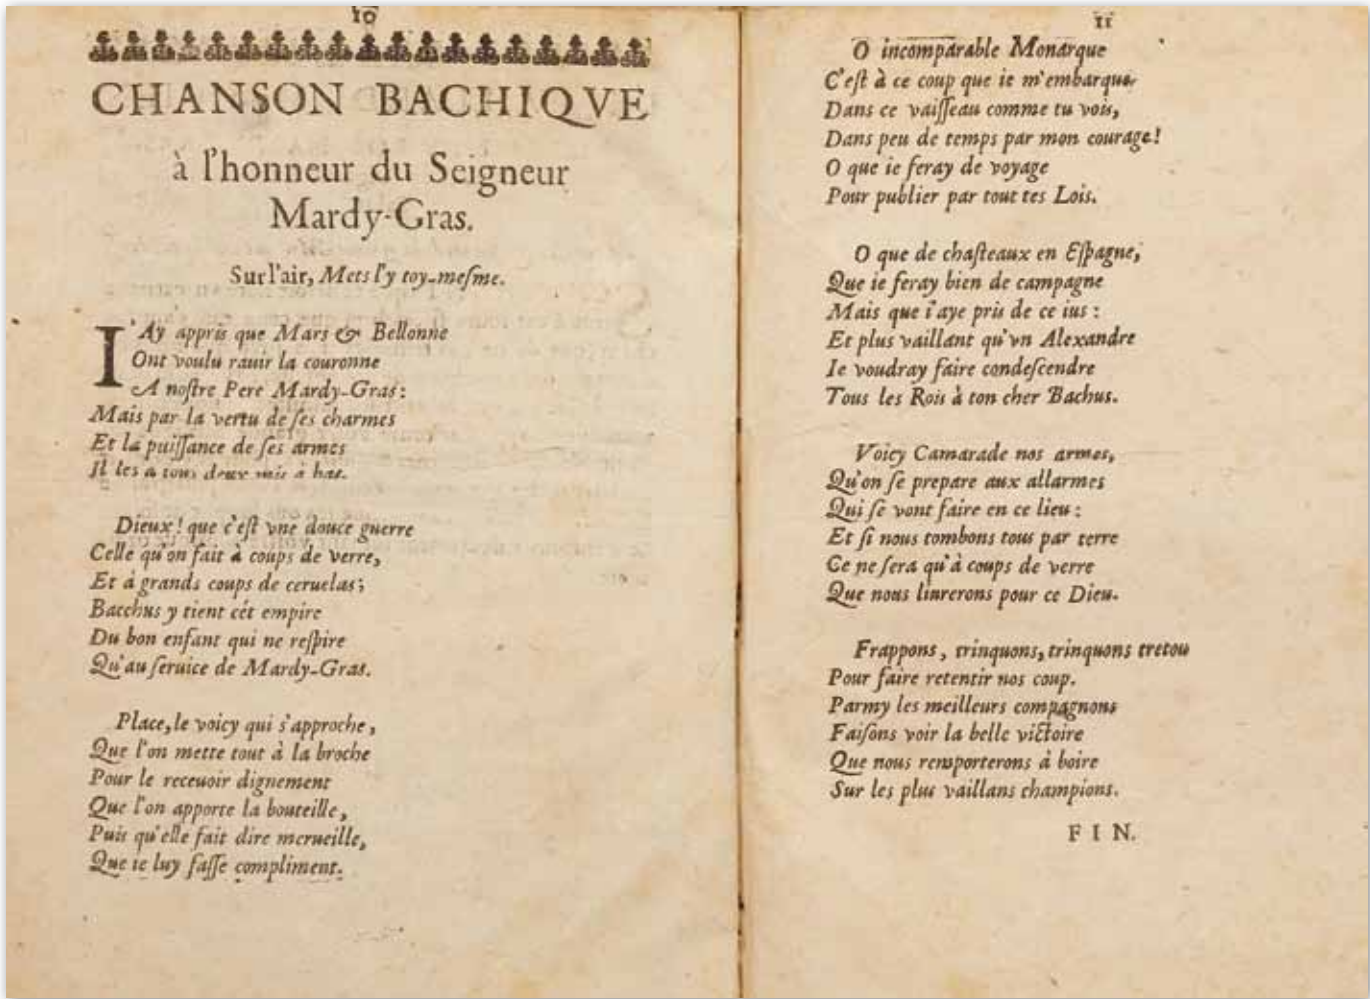 10
CHANSON BACHIQVE
à l'honneur du Seigneur
Mardy-Gras.
Sur l'air, Mets l'y toy-mesme.
I'Ay appris que Mars & Bellonne
Ont voulu rauir la couronne
A nostre Pere Mardy-Gras:
Mais par la vertu de ses charmes
Et la puissance de ses armes
Il les a tous deux mis à bas.
Dieux! que c'est vne douce guerre
Celle qu'on fait à coups de verre,
Et à grands coups de ceruelas;
Bacchus y tient cét empire
Du bon enfant qui ne respire
Qu'au seruice de Mardy-Gras.
Place, le voicy qui s'approche,
Que l'on mette tout à la broche
Pour le receuoir dignement
Que l'on apporte la bouteille,
Puis qu'elle fait dire merueille,
Que ie luy fasse compliment.
11
O incomparable Monarque
C'est à ce coup que ie m'embarque
Dans ce vaisseau comme tu vois,
Dans peu de temps par mon courage!
O que ie feray de voyage
Pour publier par tout tes Lois.
O que de chasteaux en Espagne,
Que ie feray bien de campagne
Mais que i'aye pris de ce ius:
Et plus vaillant qu'vn Alexandre
Ie voudray faire condescendre
Tous les Rois à ton cher Bachus.
Voicy Camarade nos armes,
Qu'on se prepare aux allarmes
Qui se vont faire en ce lieu:
Et si nous tombons tous par terre
Ce ne sera qu'à coups de verre
Que nous liurerons pour ce Dieu.
Frappons, trinquons, trinquons tretou
Pour faire retentir nos coup.
Parmy les meilleurs compagnons
Faisons voir la belle victoire
Que nous remporterons à boire
Sur les plus vaillans champions.
FIN.